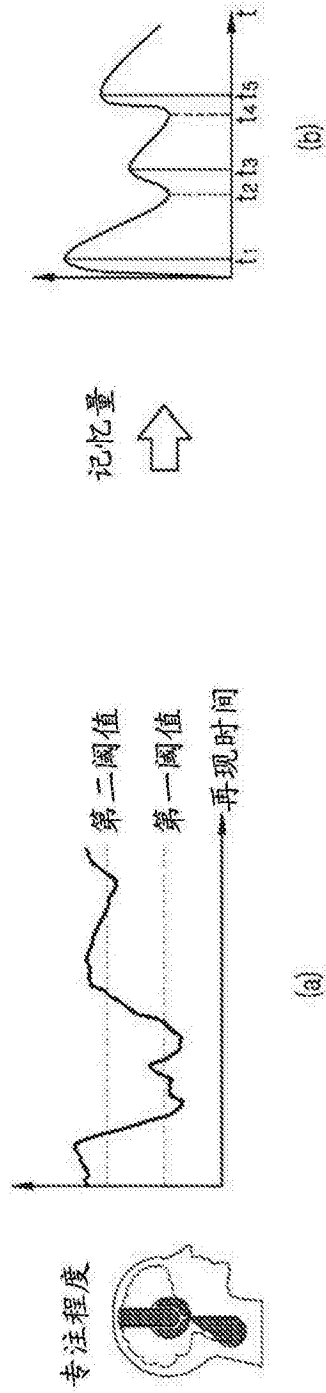 专注程度
第二阈值
第一阈值
再现时间
(a)
记忆量
t
t₁
t₂ t₃
t₄ t₅
(b)